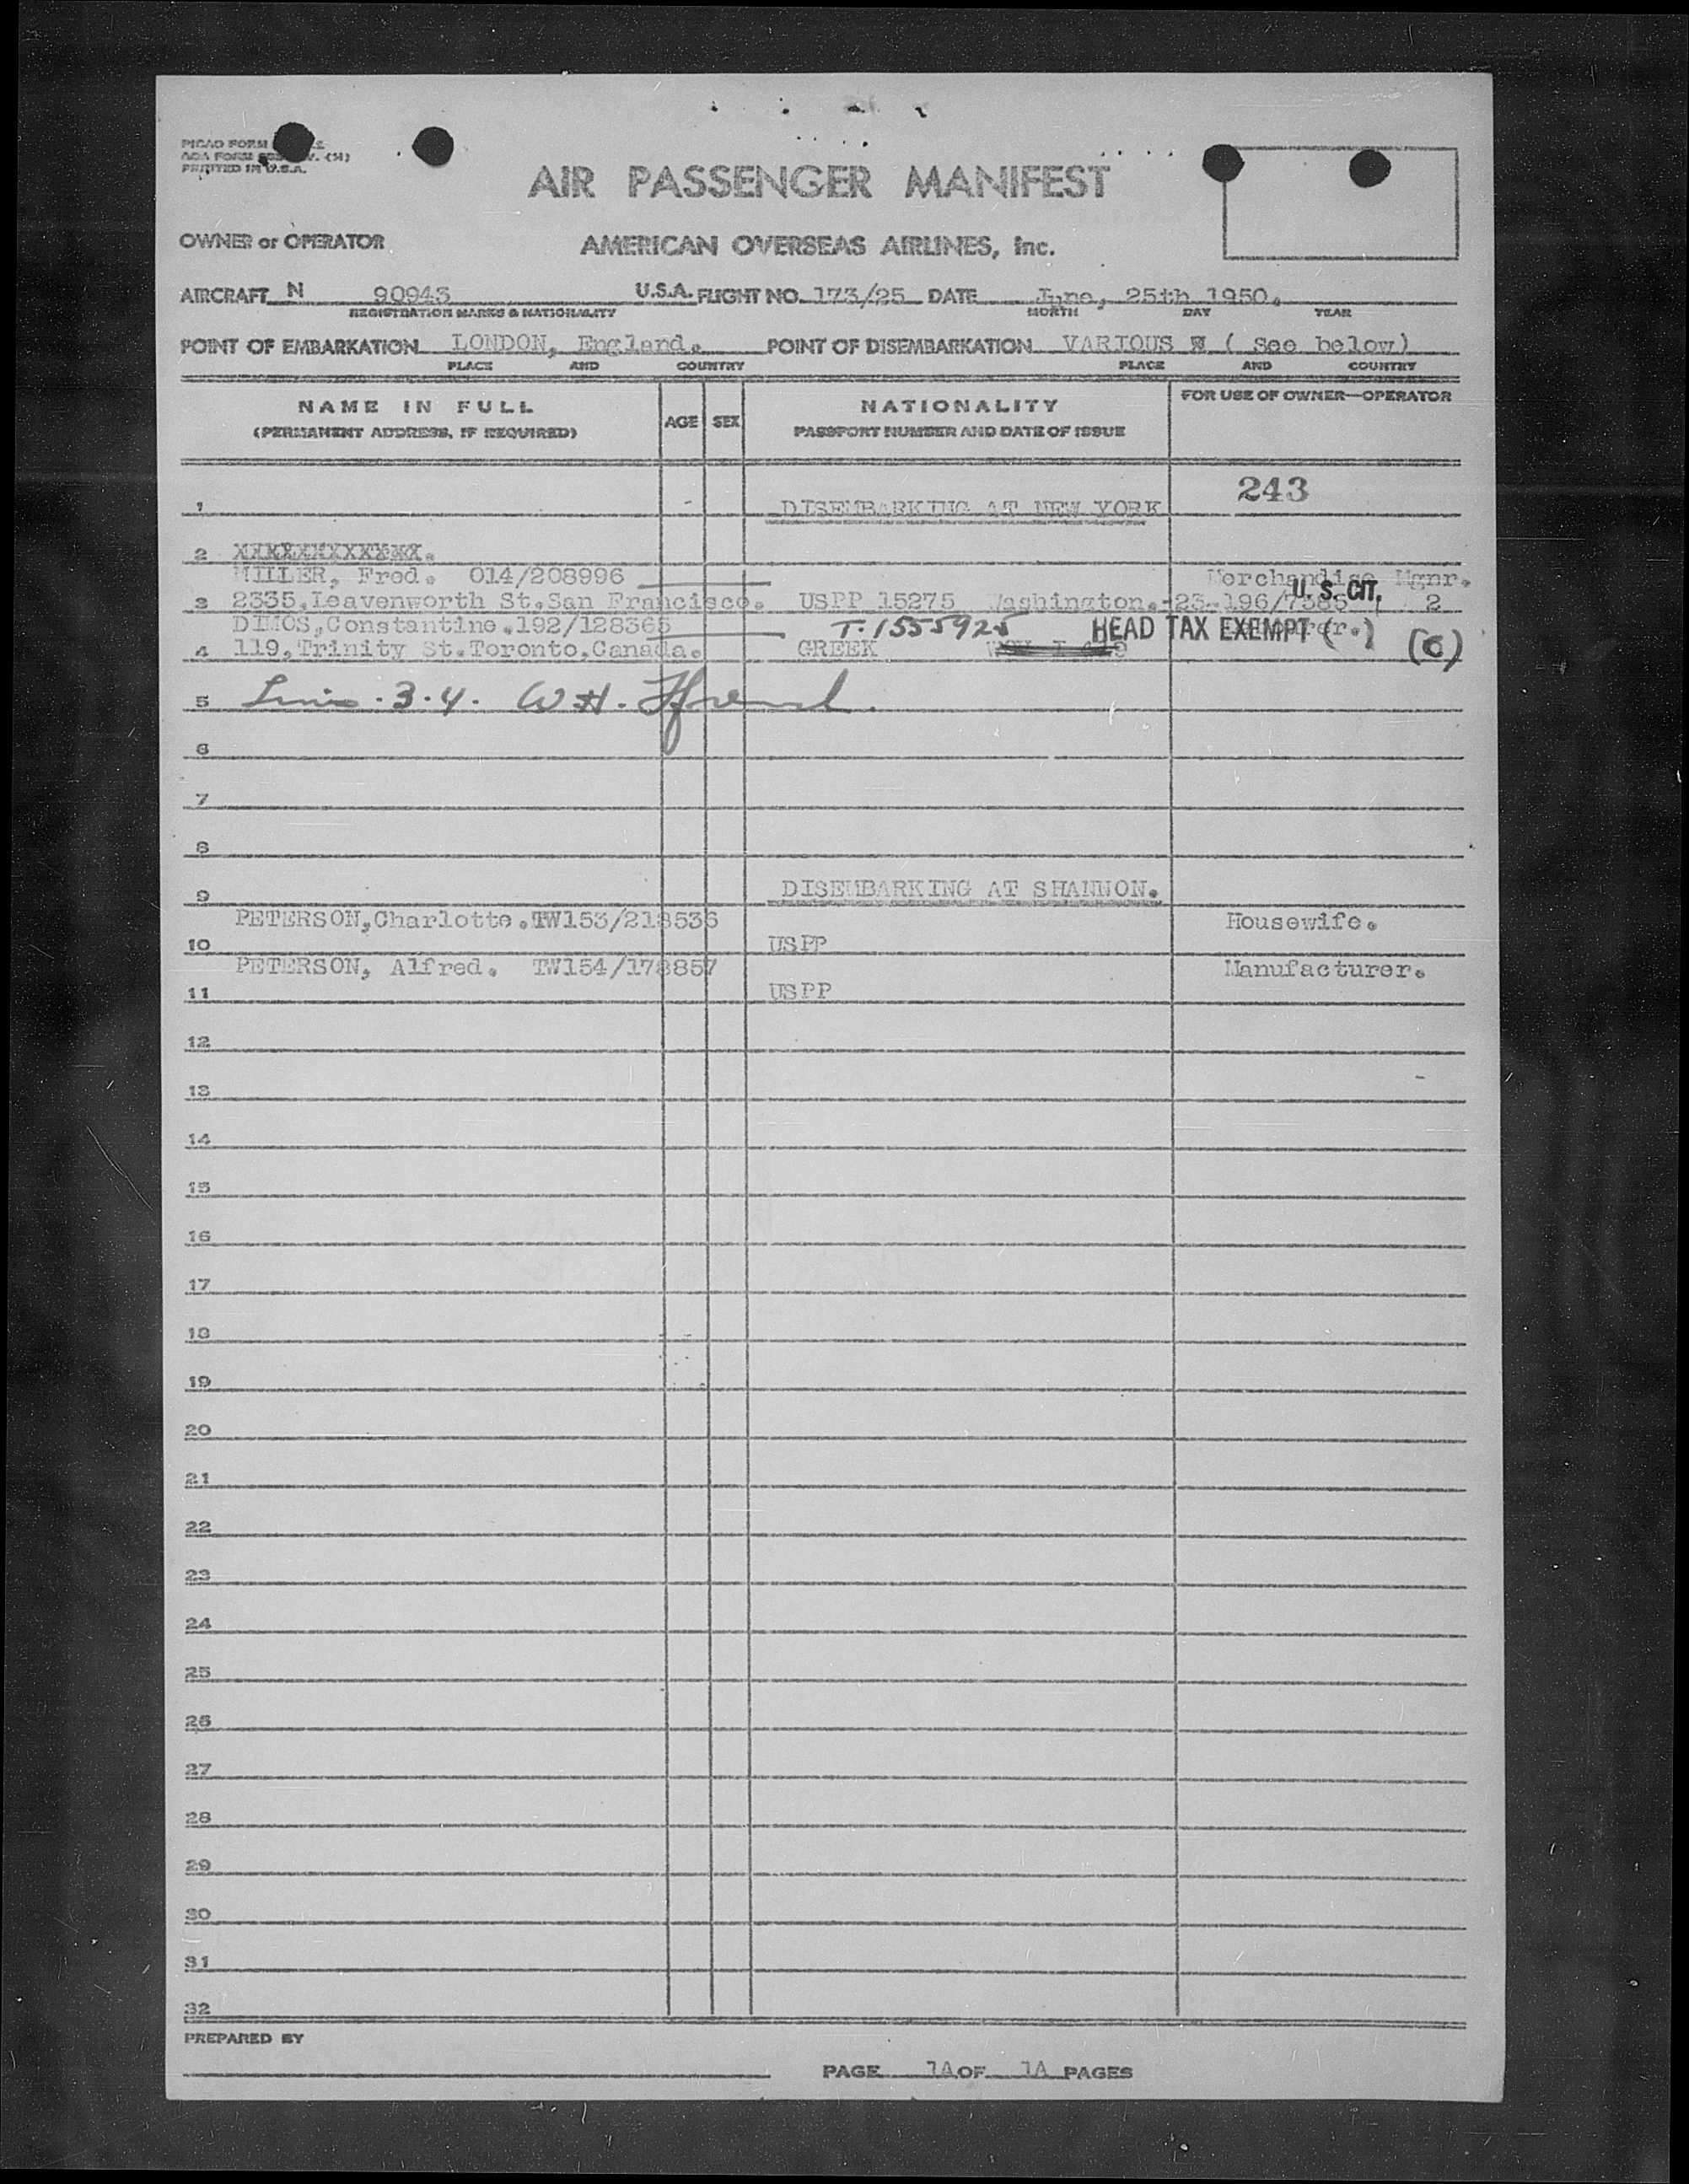 PICAO FORM
AOA FORM V. (M)
PRINTED IN U.S.A.
AIR PASSENGER MANIFEST
OWNER or OPERATOR AMERICAN OVERSEAS AIRLINES, Inc.
AIRCRAFT N 90943 U.S.A. FLIGHT NO. 173/25 DATE June, 25th 1950.
REGISTRATION MARKS & NATIONALITY MONTH DAY YEAR
POINT OF EMBARKATION LONDON, England. POINT OF DISEMBARKATION VARIOUS ( See below)
PLACE AND COUNTRY PLACE AND COUNTRY
NAME IN FULL AGE SEX NATIONALITY FOR USE OF OWNER—OPERATOR
(PERMANENT ADDRESS, IF REQUIRED) PASSPORT NUMBER AND DATE OF ISSUE
243
1 DISEMBARKING AT NEW YORK
2 XXXXXXXXXXXXX.
MILLER, Fred. 014/208996 Merchandise Mgnr.
3 2335,Leavenworth St.San Francisco. USPP 15275 Washington.-23-196/7385 U. S. CIT. 2
DIMOS,Constantine.192/128365 T.1555925 HEAD TAX EXEMPT ( ) (6)
4 119,Trinity St.Toronto,Canada. GREEK
5 3.4. W.H.
6
7
8
9 DISEMBARKING AT SHANNON.
PETERSON,Charlotte.TW153/218536 Housewife.
10 USPP
PETERSON, Alfred. TW154/178857 Manufacturer.
11 USPP
12
13
14
15
16
17
18
19
20
21
22
23
24
25
26
27
28
29
30
31
32
PREPARED BY
PAGE 1A OF 1A PAGES